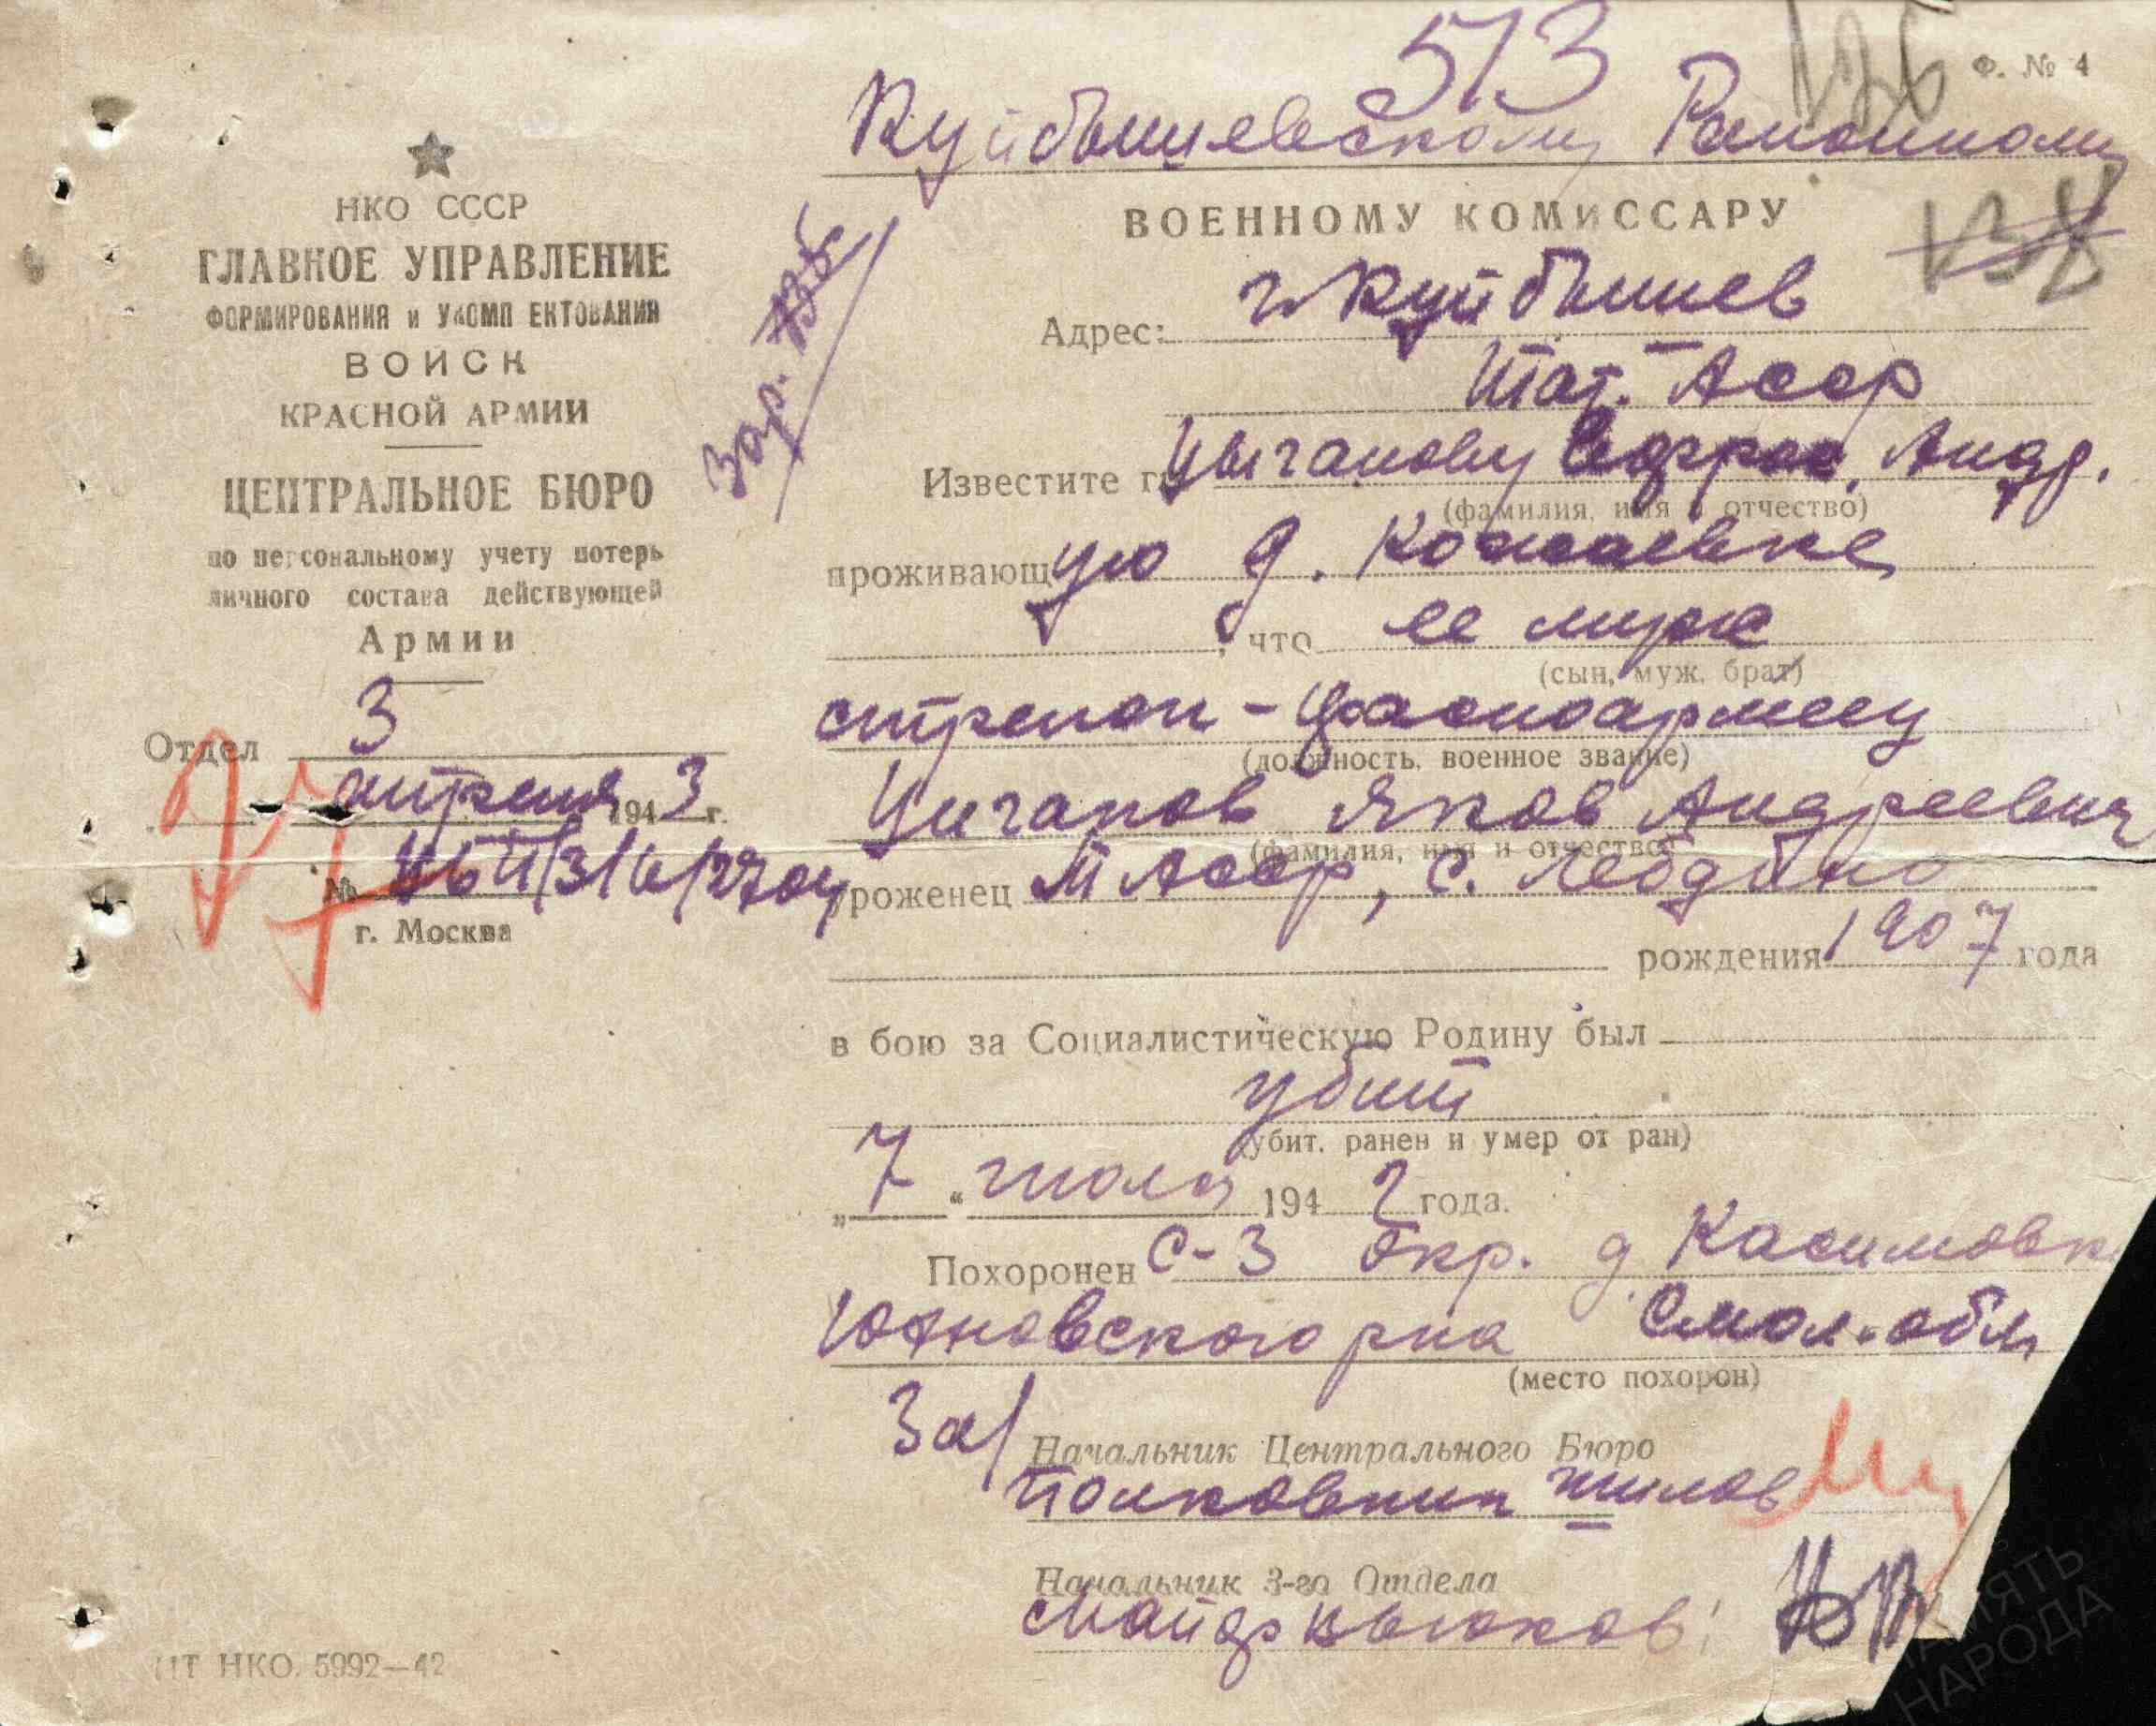 573
126
Ф. № 4
Куйбышевскому Районному
ВОЕННОМУ КОМИССАРУ
138
Адрес: г Куйбышев
Тат. Асср
Известите гр. Цыганову Андр.
(фамилия, имя и отчество)
проживающую д. Кожаевке
, что ее муж
(сын, муж, брат)
стрелок-красноармеец
(должность, военное звание)
Циганов Яков Андреевич
(фамилия, имя и отчество)
уроженец ТАсср, с. Лебедино
рождения 1907 года
в бою за Социалистическую Родину был
убит
(убит, ранен и умер от ран)
„ 7 “ июля 1942 года.
Похоронен С-З окр. д Касимовк
Юхновского р-на Смол. обл
(место похорон)
За/ Начальник Центрального Бюро
Полковник Шилов
Начальник 3-го Отдела
Майор
НКО СССР
ГЛАВНОЕ УПРАВЛЕНИЕ
ФОРМИРОВАНИЯ и УКОМПЛЕКТОВАНИЯ
ВОЙСК
КРАСНОЙ АРМИИ
ЦЕНТРАЛЬНОЕ БЮРО
по персональному учету потерь
личного состава действующей
Армии
Отдел 3
апреля 1943 г.
№
г. Москва
НКО. 5992—42
ПАМЯТЬ
НАРОДА